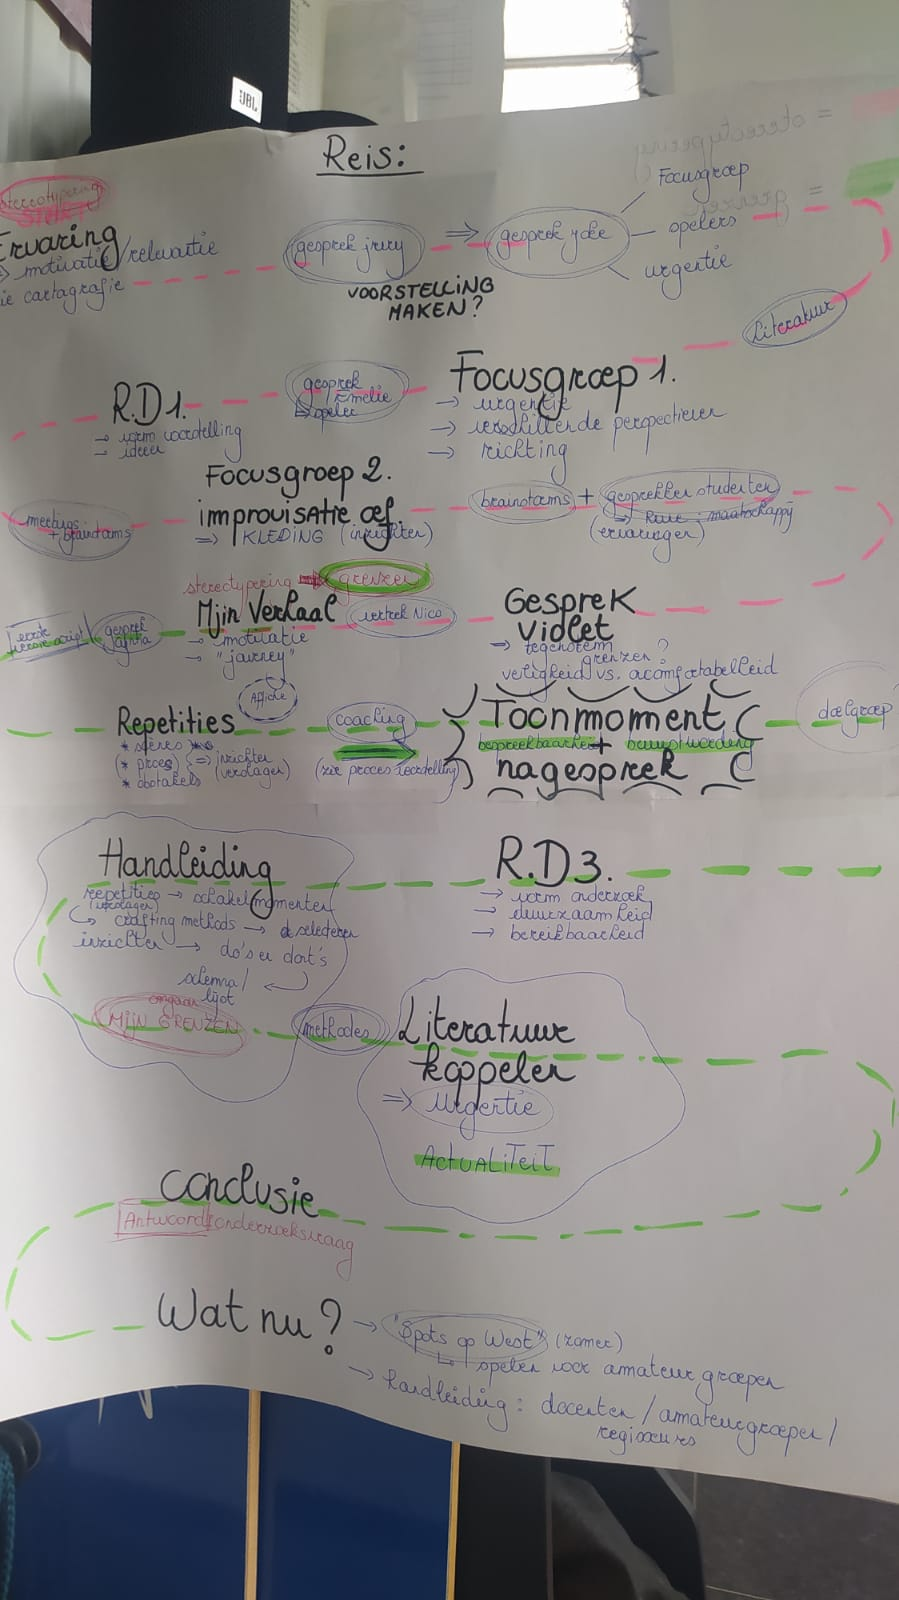 JBL
Reis:
= stereotypering
= grenzen
stereotypering
START
Ervaring
→ motivatie/relevantie
ie cartografie
gesprek jury
⇒
gesprek yoke
Focusgroep
spelers
urgentie
VOORSTELLING
MAKEN?
Literatuur
R.D1.
→ vorm voorstelling
→ ideeën
gesprek
Emelie
↳ speler
Focusgroep 1.
→ urgentie
→ verschillende perspectieven
→ richting
Focusgroep 2.
improvisatie oef
⇒ KLEDING (inzichten)
meetings
+ brainstorms
brainstorms + gesprekken studenten
maatschappij
(ervaringen)
stereotypering → grenzen
Mijn Verhaal
→ motivatie
→ "journey"
vertrek Nico
Gesprek
Violet
→ tegenstem
grenzen?
veiligheid vs. oncomfortabelheid
eerste
versie script
gesprek
Affiche
Repetities
* scènes
* proces
* obstakels
⇒ inzichten
(verslagen)
coaching
(zie procesverdeling)
Toonmoment
bespreekbaarheid + bewustwording
nagesprek
doelgroep
Handleiding
repetities → schakelmomenten
(verslagen)
↳ crafting methods → selecteren
inzichten → do's en dont's
schema/
lijst
omgaan
MIJN GRENZEN
methodes
R.D3.
→ vorm onderzoek
→ duurzaamheid
→ bereikbaarheid
Literatuur
koppelen
⇒ Urgentie
ACTUALITEIT
Conclusie
Antwoord onderzoeksvraag
Wat nu?
→ "Spots op West" (zomer)
↳ spelen voor amateurgroepen
→ handleiding: docenten/amateurgroepen/
regisseurs